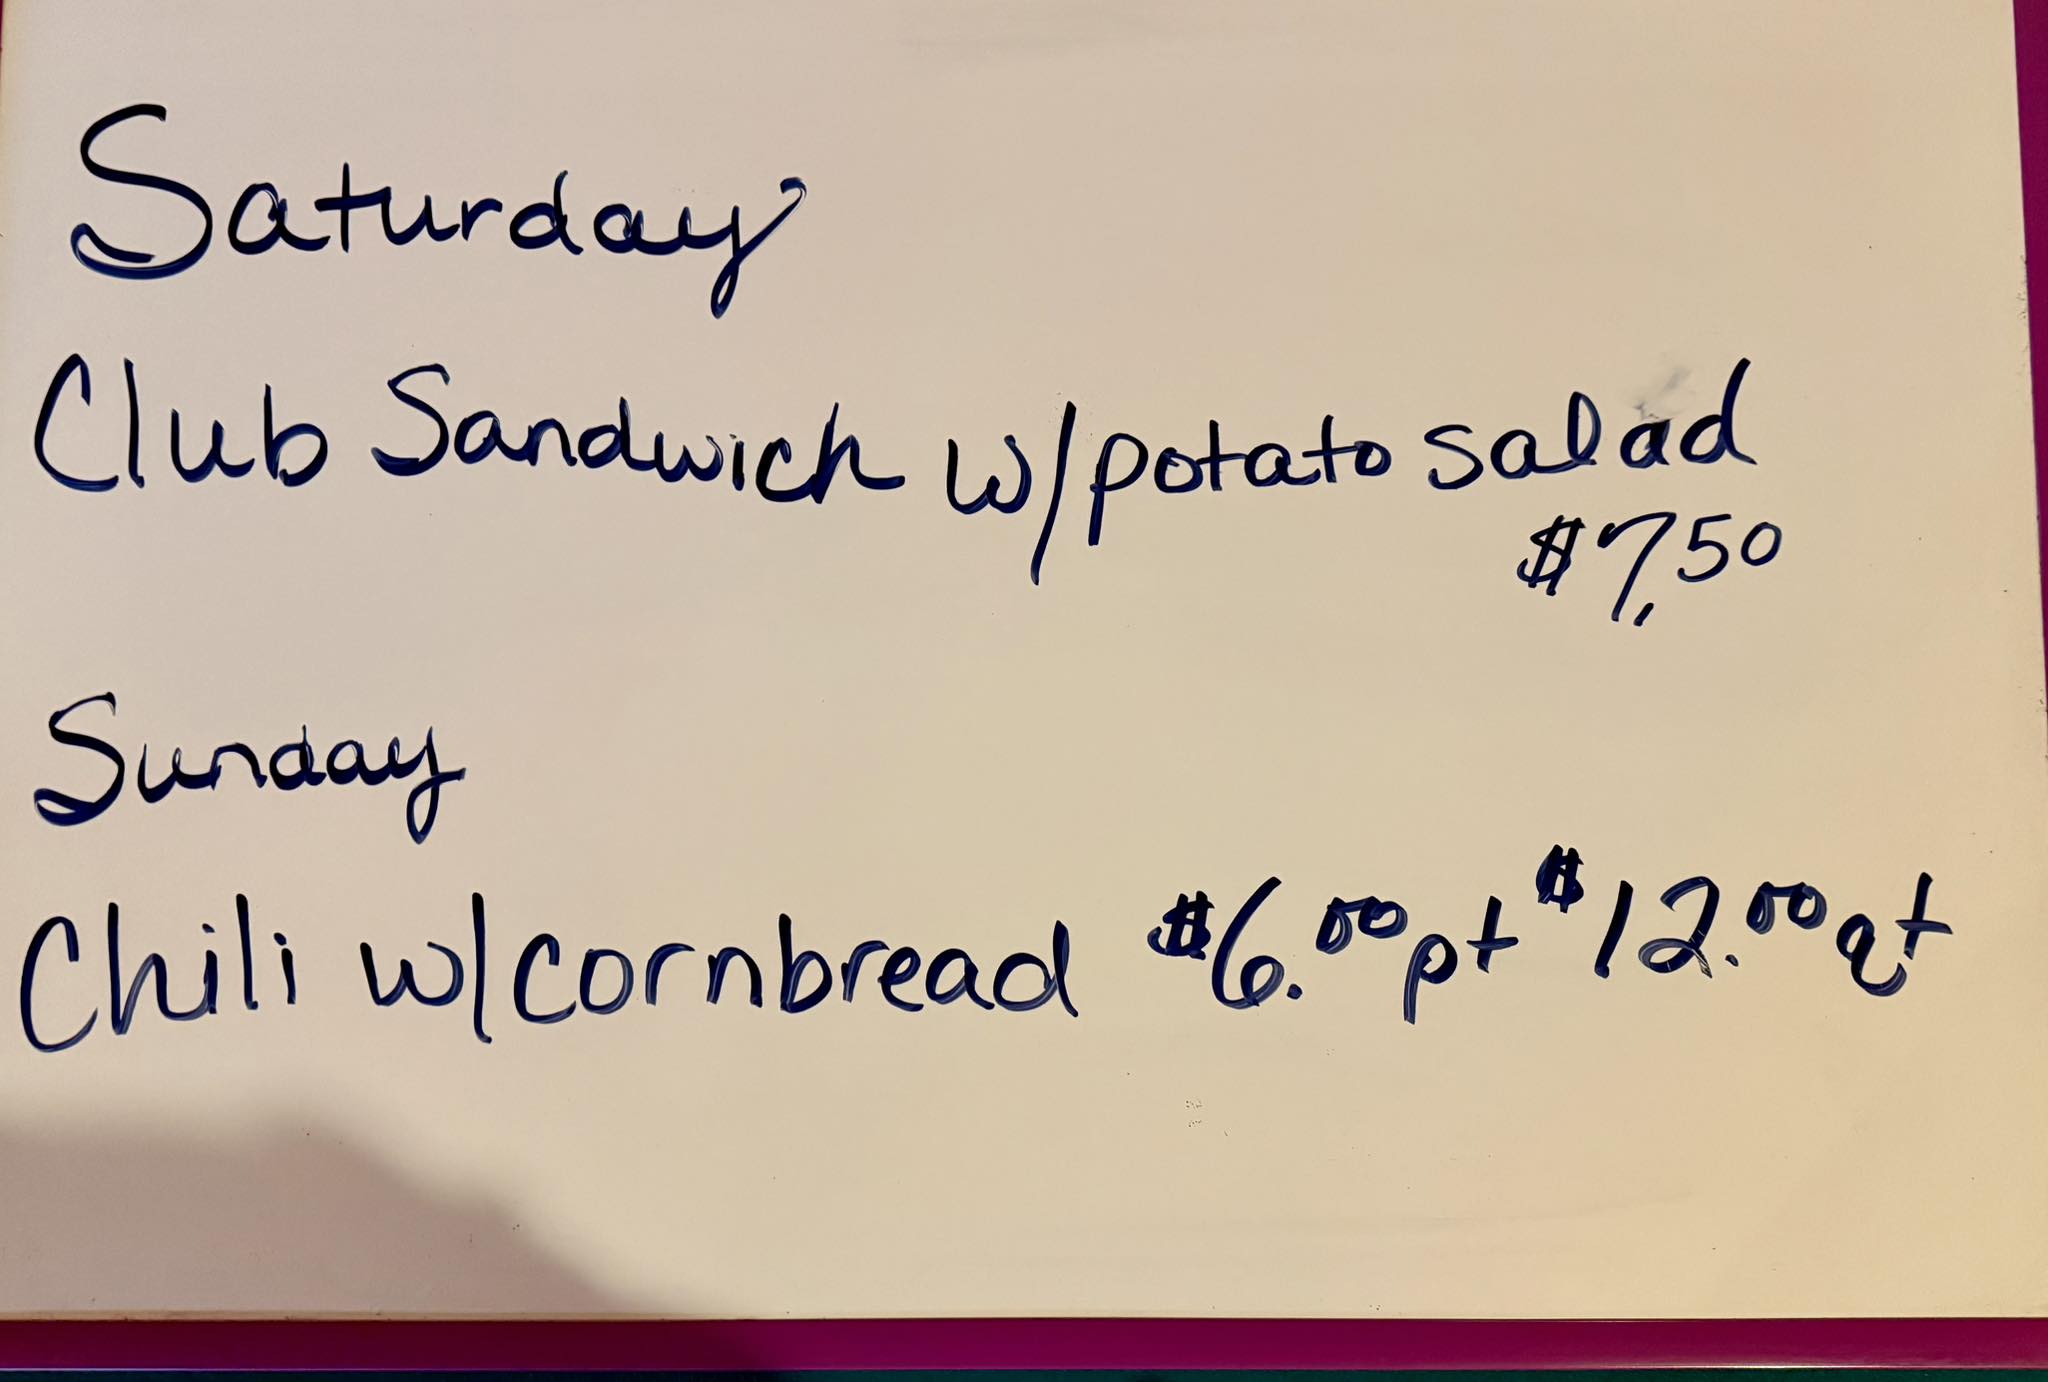 Saturday
Club Sandwich w/potato salad
$7.50
Sunday
Chili w/cornbread $6.00 pt $12.00 qt